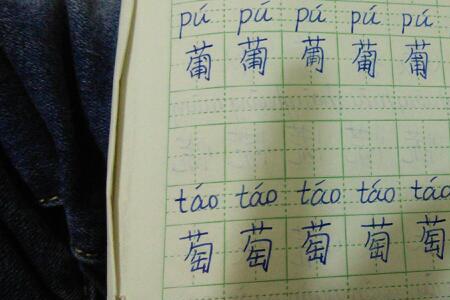 pú pú pú pú pú
葡 葡 葡 葡 葡
táo táo táo táo táo
萄 萄 萄 萄 萄